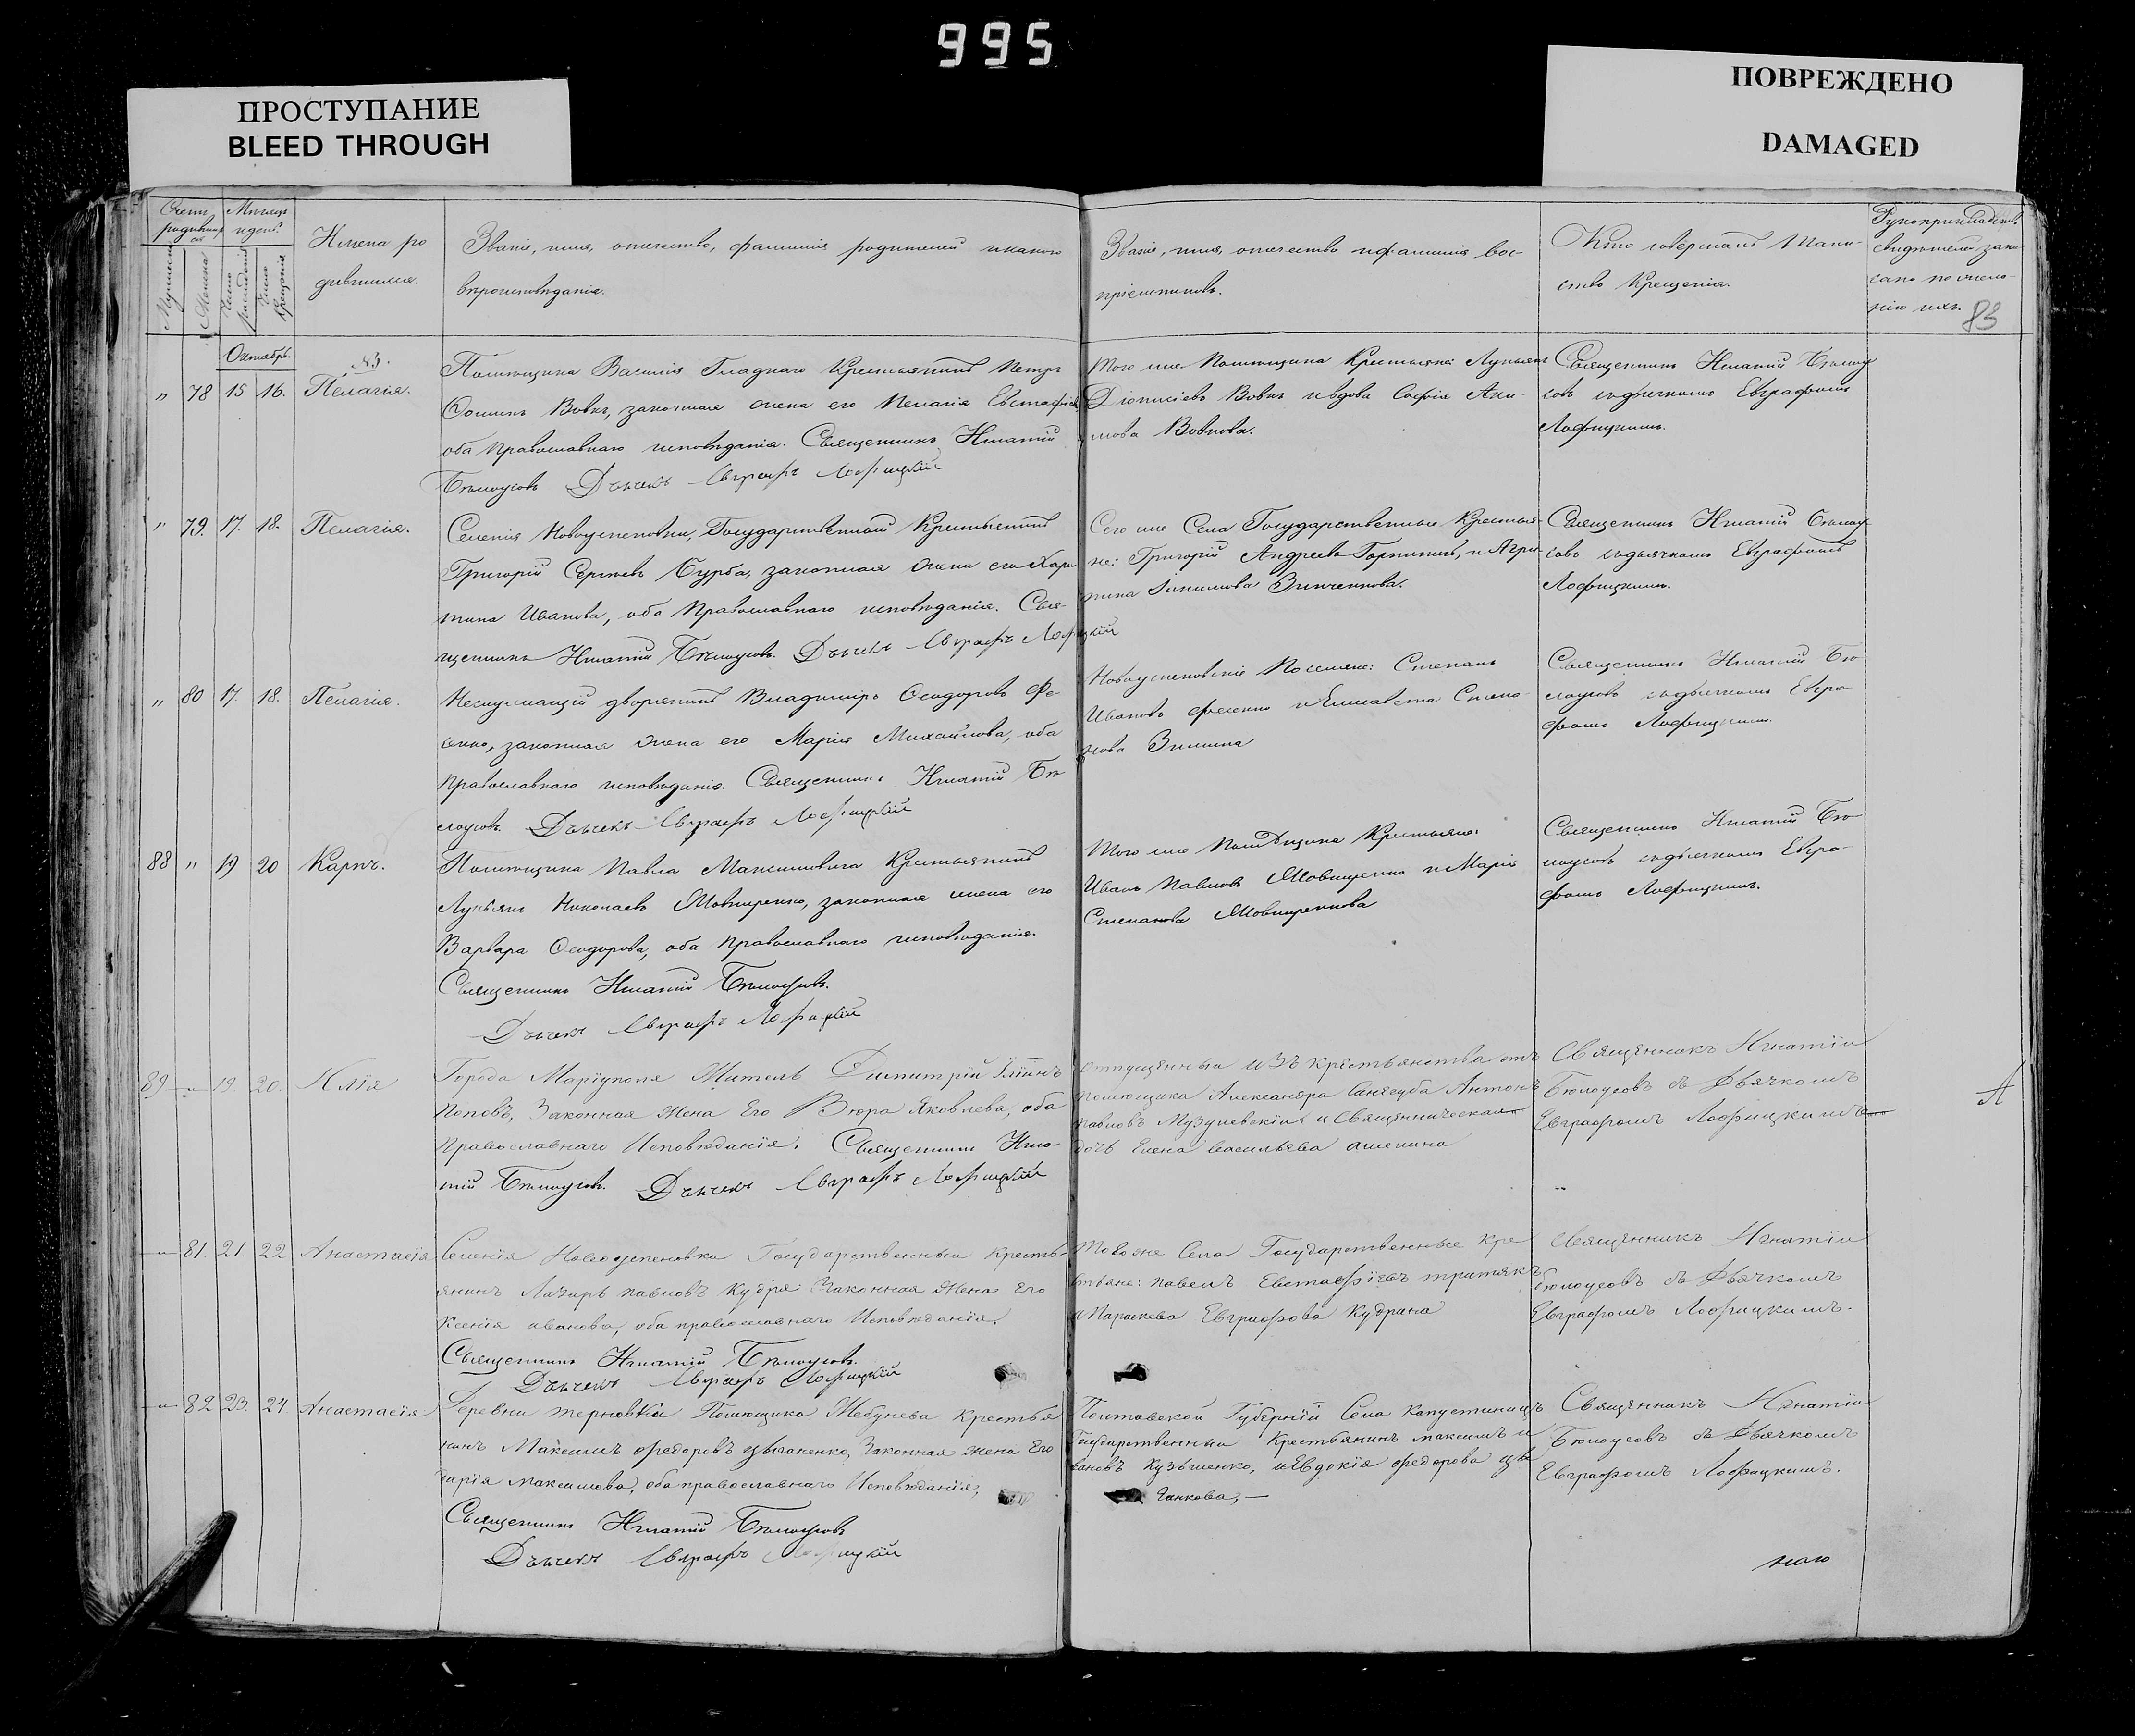 995
ПРОСТУПАНИЕ
BLEED THROUGH
ПОВРЕЖДЕНО
DAMAGED
Имена ро
дившихся.
Званіе, имя, отечество, фамилія родителей и какого
вѣроисповѣданія.
Званіе, имя, отечество и фамилія вос-
пріемниковъ.
Кто совершалъ Таин-
ство Крещенія.
83
Октябрь.
" 78 15 16. Пелагія.
Помѣщика Василія Гладкаго Крестьянинъ Петръ
Вовкъ, законная жена его Пелагія
оба православнаго исповѣданія. Священникъ Игнатій
Бѣлоусовъ Дьячекъ Евграфъ Лофицкій
Того же Помѣщика Крестьяне: Лукьянъ
Діонисіевъ Вовкъ и вдова Софія Аки-
мова Вовкова.
Священникъ Игнатій Бѣлоу
совъ съ дьячкомъ Евграфомъ
Лофицкимъ.
" 79. 17. 18. Пелагія.
Селенія Новоуспеновки, Государственный Крестьянинъ
Григорій Сергѣевъ Бурба, законная жена его Хари
тина Иванова, оба Православнаго исповѣданія. Свя-
щенникъ Игнатій Бѣлоусовъ. Дьячекъ Евграфъ Лофицкій
Сего же Села Государственные Крестья-
не: Григорій Андреевъ и Агри-
пина Зинченкова.
Священникъ Игнатій Бѣлоу
совъ съ дьячкомъ Евграфомъ
Лофицкимъ.
" 80 17. 18. Пелагія.
Неслужащій дворянинъ Владиміръ Ѳеодоровъ Фе-
сенко, законная жена его Марія Михайлова, оба
Православнаго исповѣданія. Священникъ Игнатій Бѣ
лоусовъ. Дьячекъ Евграфъ Лофицкій
Новоуспеновскіе Поселяне: Степанъ
Ивановъ Фесенко и Елисавета Степа
нова Зимина
Священникъ Игнатій Бѣ
лоусовъ съ дьячкомъ Евгра
фомъ Лофицкимъ.
88 " 19 20 Карпъ.
Помѣщика Павла Максимовича Крестьянинъ
Лукьянъ Николаевъ законная жена его
Варвара Ѳеодорова, оба Православнаго исповѣданія.
Священникъ Игнатій Бѣлоусовъ.
Дьячекъ Евграфъ Лофицкій
Того же Помѣщика Крестьяне:
Иванъ Павловъ и Марія
Степанова
Священникъ Игнатій Бѣ
лоусовъ съ дьячкомъ Евгра-
фомъ Лофицкимъ.
89 " 19 20. Илія
Города Маріуполя Житель Димитрій Іліинъ
Поповъ, Законная Жена Его Вѣра Яковлева, оба
Православнаго Исповѣданія. Священникъ Игна-
тій Бѣлоусовъ. Дьячекъ Евграфъ Лофицкій
отпущенный изъ крестьянства отъ
помѣщика Александра Антонъ
Павловъ и Священническая
дочь Елена Васильева
Священникъ Игнатій
Бѣлоусовъ съ Дьячкомъ
Евграфомъ Лофицкимъ
А
" 81. 21. 22 Анастасія
Селенія Новоуспеновки Государственный Кресть-
янинъ Лазарь Павловъ Кудря Законная Жена Его
Ксенія Иванова, оба православнаго Исповѣданія.
Священникъ Игнатій Бѣлоусовъ.
Дьячекъ Евграфъ Лофицкій
Того же Села Государственные Кре
стьяне: Павелъ Евстафіевъ третякъ
и Параскева Евграфова Кудрина
Священникъ Игнатій
Бѣлоусовъ съ Дьячкомъ
Евграфомъ Лофицкимъ.
" 82 23. 24 Анастасія
Деревни терновки Помѣщика Крестья
нинъ Максимъ Федоровъ Цыганенко, Законная жена Его
Дарія Максимова, оба православнаго Исповѣданія,
Священникъ Игнатій Бѣлоусовъ
Дьячекъ Евграфъ Лофицкій
Полтавской Губерніи Села Капустинецъ
Государственный Крестьянинъ Максимъ И
вановъ Кузьменко, и Евдокія Федорова Цы
ганкова, —
Священникъ Игнатій
Бѣлоусовъ съ Дьячкомъ
Евграфомъ Лофицкимъ.